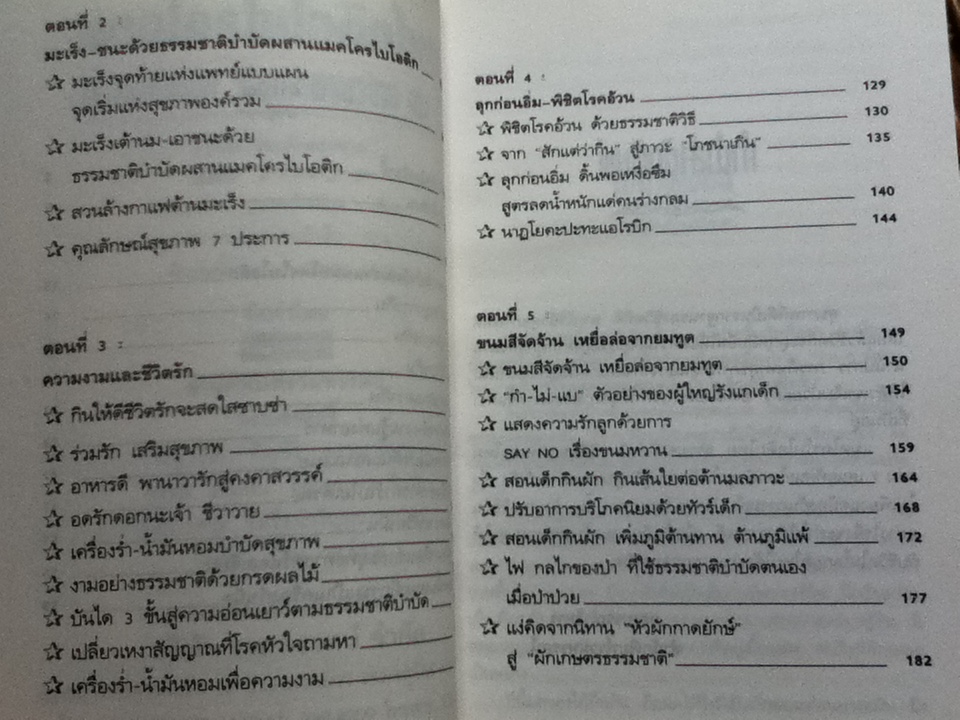 ตอนที่ 2 :
มะเร็ง-ชนะด้วยธรรมชาติบำบัดผสานแมคโครไบโอติก
☆ มะเร็งจุดท้ายแห่งแพทย์แบบแผน
จุดเริ่มแห่งสุขภาพองค์รวม
☆ มะเร็งเต้านม-เอาชนะด้วย
ธรรมชาติบำบัดผสานแมคโครไบโอติก
☆ สวนล้างกาแฟต้านมะเร็ง
☆ คุณลักษณ์สุขภาพ 7 ประการ
ตอนที่ 3 :
ความงามและชีวิตรัก
☆ กินให้ดีชีวิตรักจะสดใสซาบซ่า
☆ ร่วมรัก เสริมสุขภาพ
☆ อาหารดี พานาวารักสู่คงคาสวรรค์
☆ อดรักดอกนะเจ้า ชีวาวาย
☆ เครื่องร่ำ-น้ำมันหอมบำบัดสุขภาพ
☆ งามอย่างธรรมชาติด้วยกรดผลไม้
☆ บันได 3 ขั้นสู่ความอ่อนเยาว์ตามธรรมชาติบำบัด
☆ เปลี่ยวเหงาสัญญาณที่โรคหัวใจถามหา
☆ เครื่องร่ำ-น้ำมันหอมเพื่อความงาม
ตอนที่ 4 :
ลุกก่อนอิ่ม-พิชิตโรคอ้วน 129
☆ พิชิตโรคอ้วน ด้วยธรรมชาติวิธี 130
☆ จาก "สักแต่ว่ากิน" สู่ภาวะ "โภชนาเกิน" 135
☆ ลุกก่อนอิ่ม ดิ้นพอเหงื่อซึม
สูตรลดน้ำหนักแด่คนร่างกลม 140
☆ นาฏโยคะปะทะแอโรบิก 144
ตอนที่ 5 :
ขนมสีจัดจ้าน เหยื่อล่อจากยมทูต 149
☆ ขนมสีจัดจ้าน เหยื่อล่อจากยมทูต 150
☆ "กำ-ไม่-แบ" ตัวอย่างของผู้ใหญ่รังแกเด็ก 154
☆ แสดงความรักลูกด้วยการ
SAY NO เรื่องขนมหวาน 159
☆ สอนเด็กกินผัก กินเส้นใยต่อต้านมลภาวะ 164
☆ ปรับอาการบริโภคนิยมด้วยทัวร์เด็ก 168
☆ สอนเด็กกินผัก เพิ่มภูมิต้านทาน ต้านภูมิแพ้ 172
☆ ไฟ กลไกของป่า ที่ใช้ธรรมชาติบำบัดตนเอง
เมื่อป่าป่วย 177
☆ แง่คิดจากนิทาน "หัวผักกาดยักษ์"
สู่ "ผักเกษตรธรรมชาติ" 182